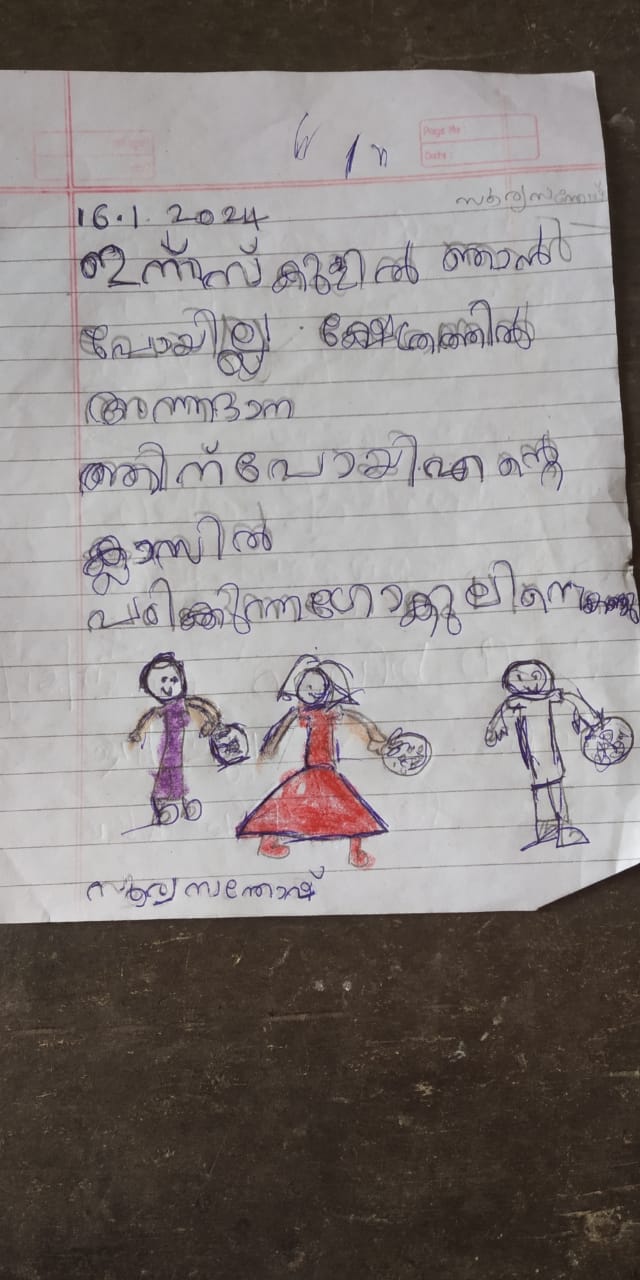 Page No
Date:
സൂര്യസന്തോഷ്
16.1.2024
ഇന്ന് സ്കൂളിൽ ഞാൻ
പോയില്ല. ക്ഷേത്രത്തിൽ
അന്നദാന
ത്തിന് പോയി. എന്റെ
ക്ലാസിൽ
പഠിക്കുന്ന ഗോകുലിനെ
സൂര്യ സന്തോഷ്